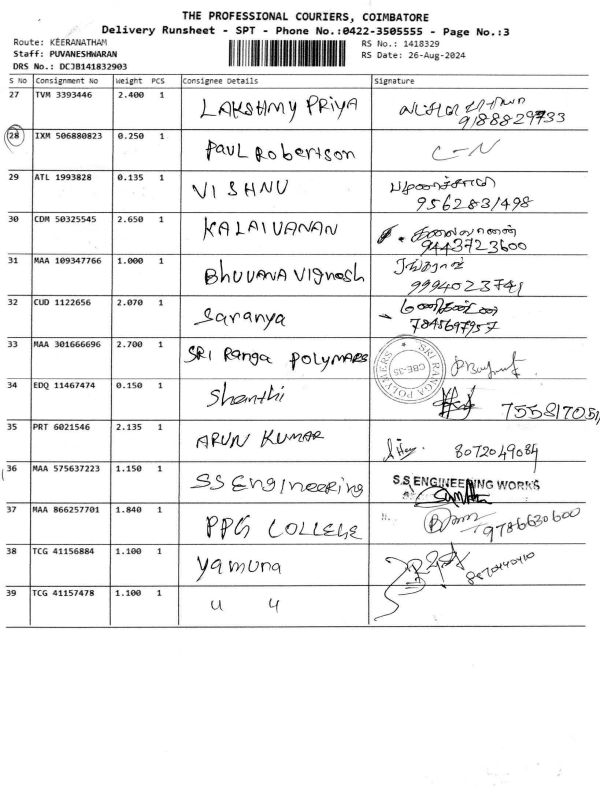 THE PROFESSIONAL COURIERS, COIMBATORE
Delivery Runsheet - SPT - Phone No.:0422-3505555 - Page No.:3
Route: KEERANATHAM
RS No.: 1418329
Staff: PUVANESHWARAN
RS Date: 26-Aug-2024
DRS No.: DCJB141832903
S No Consignment No Weight PCS Consignee Details Signature
27 TVM 3393446 2.400 1 LAKSHMY PRIYA
9188829733
28 IXM 506880823 0.250 1 Paul Robertson C-N
29 ATL 1993828 0.135 1 VISHNU
9562831498
30 CDM 50325545 2.650 1 KALAIVANAN கலைவாணன்
9443723600
31 MAA 109347766 1.000 1 BHUVANA Vignesh
9994023741
32 CUD 1122656 2.070 1 Saranya மணிகண்டன்
7845697957
33 MAA 301666696 2.700 1 SRI Ranga POLYMARS SRI RANGA POLYMERS CBE-35
34 EDQ 11467474 0.150 1 Shanthi 755817051
35 PRT 6021546 2.135 1 ARUN KUMAR 8072049084
36 MAA 575637223 1.150 1 SS Engineering S.S ENGINEERING WORKS
37 MAA 866257701 1.840 1 PPG COLLEGE 9786630600
38 TCG 41156884 1.100 1 Yamuna
39 TCG 41157478 1.100 1 u 4